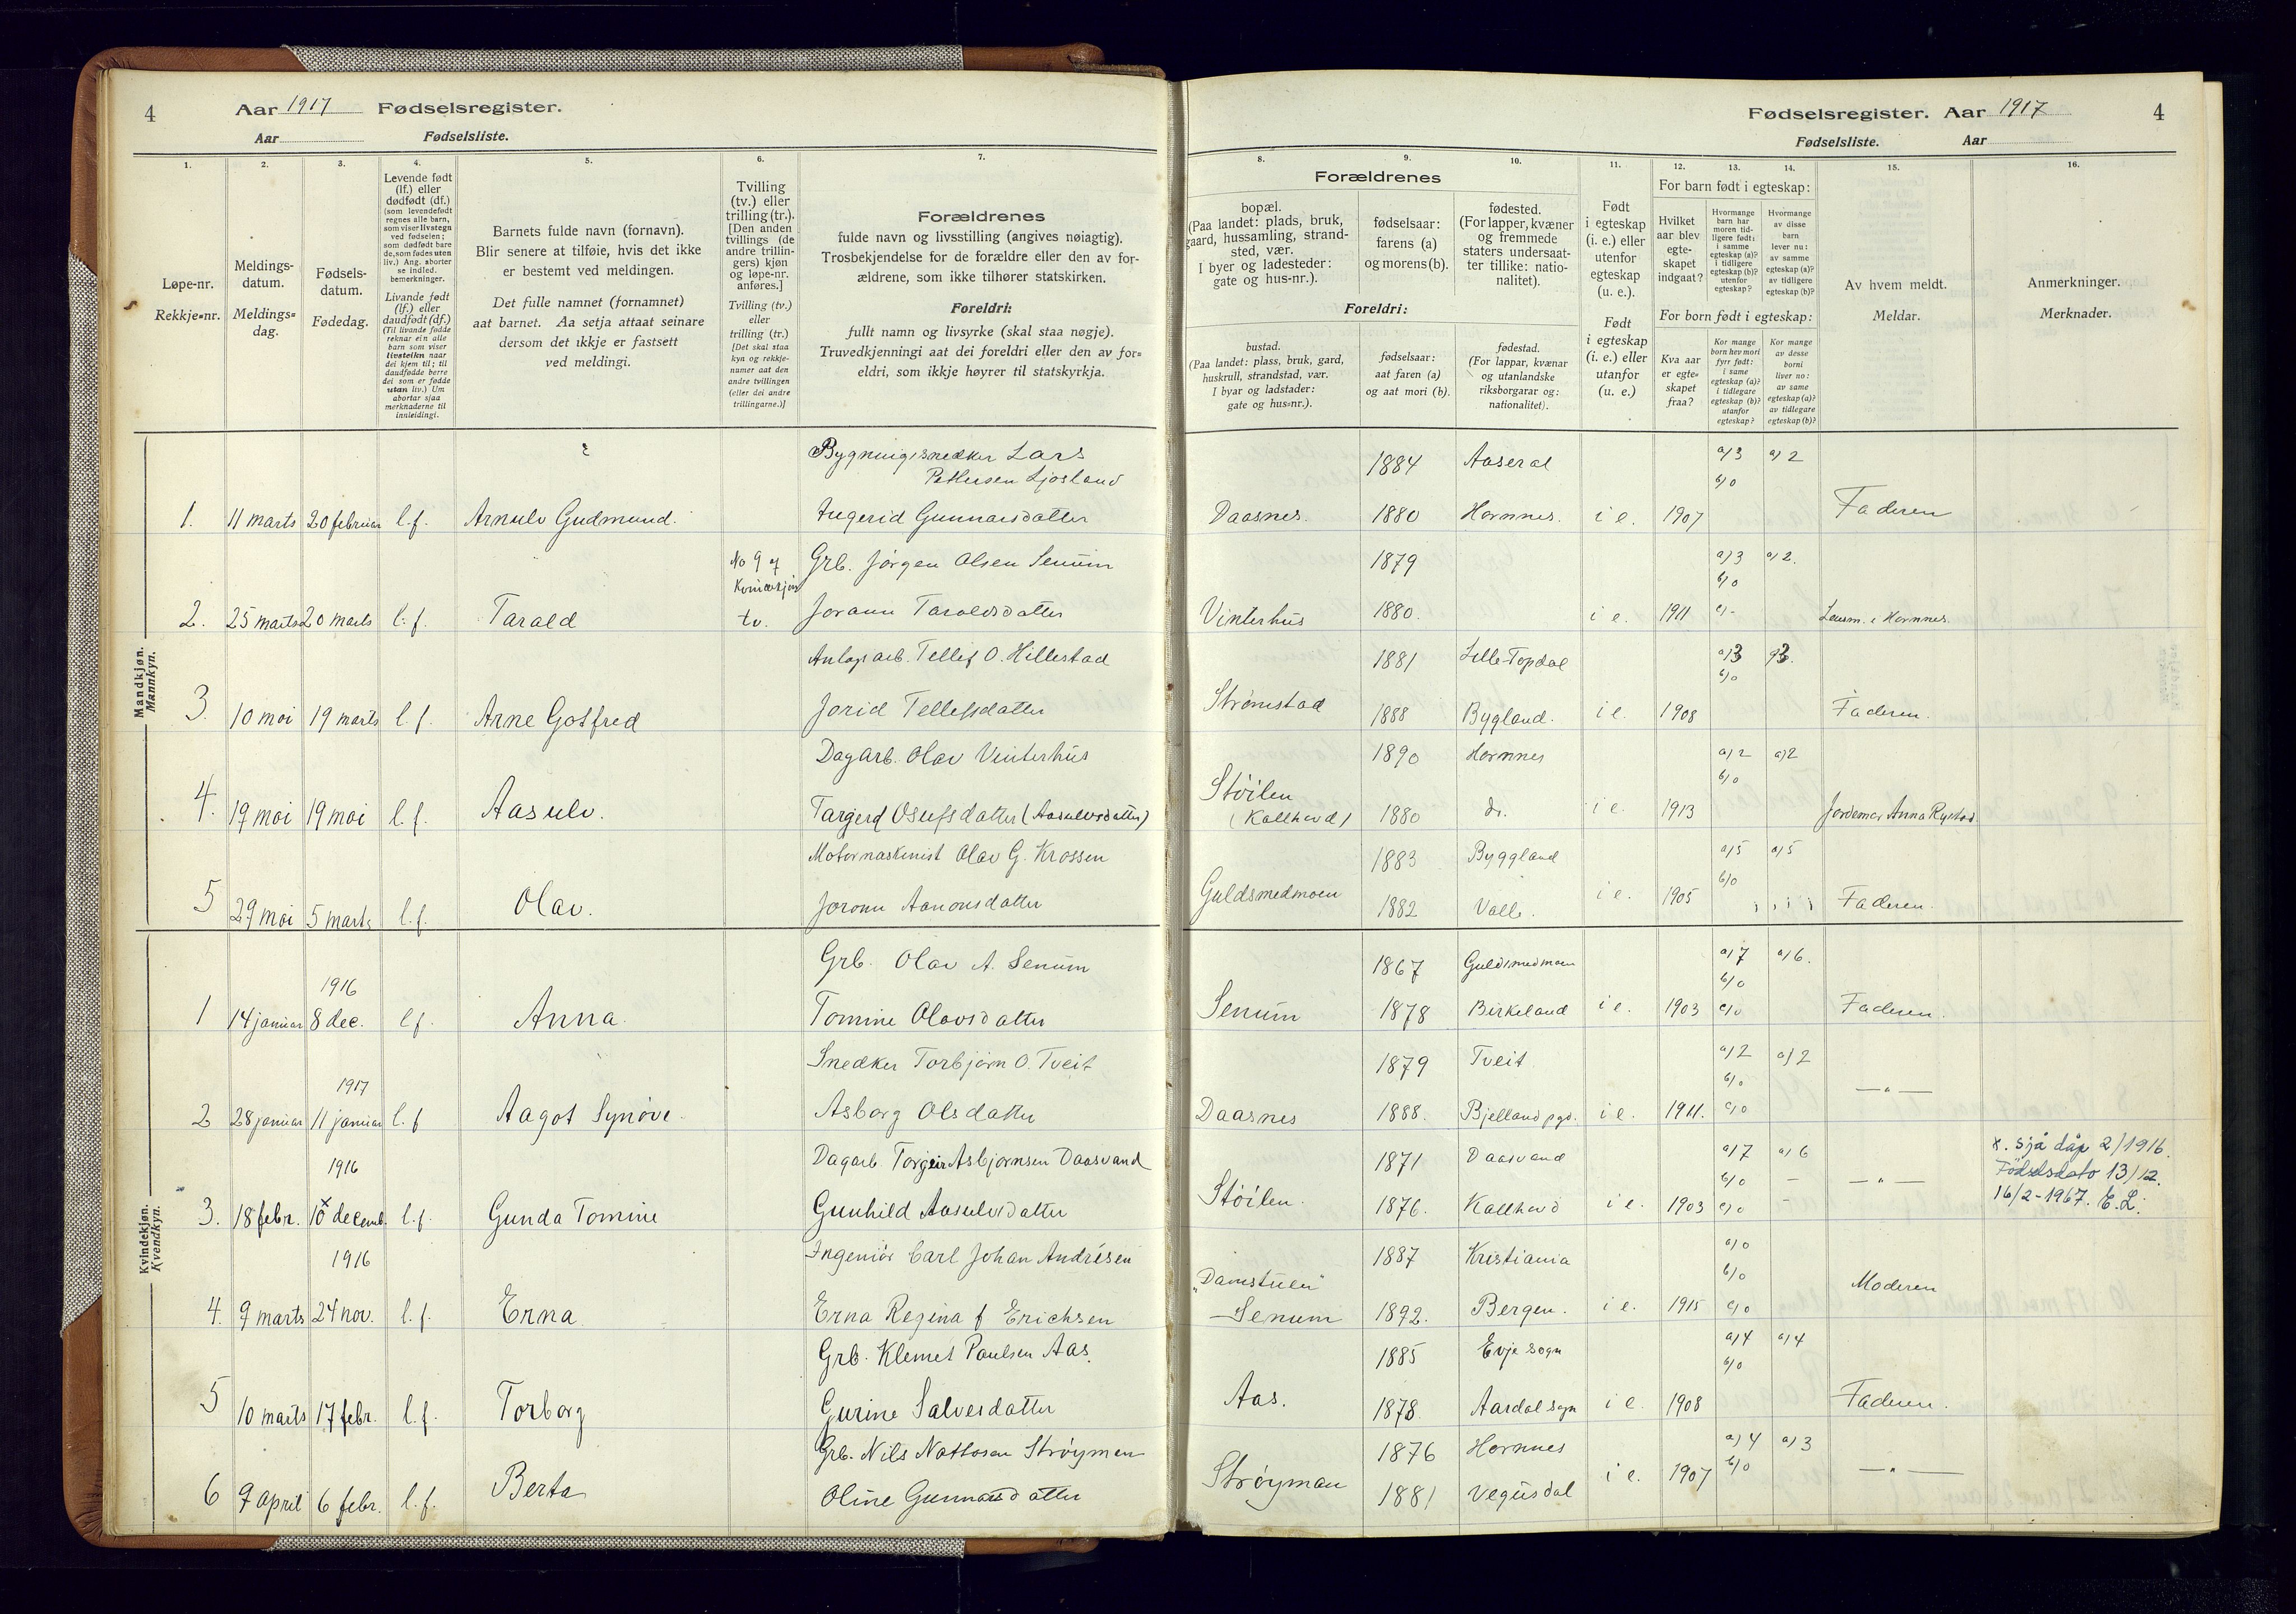 4 Aar 1917 Fødselsregister.
Aar Fødselsliste.
1. 2. 3. 4. 5. 6. 7.
Løpe-nr.
Rekkje=nr.
Meldings-
datum.
Meldings=
dag.
Fødsels-
datum.
Fødedag.
Levende født
(lf.) eller
dødfødt (df.)
(som levendefødt
regnes alle barn,
som viser livstegn
ved fødselen;
som dødfødt bare
de, som fødes uten
liv.) Ang. aborter
se indled.
bemerkninger.
Livande født
(lf.) eller
daudfødt (df.)
(Til livande fødde
reknar ein alle
barn som viser
livsteikn naar
dei kjem til; til
daudfødde berre
dei som er fødde
utan liv.) Um
abortar sjaa
merknaderne til
innleidingi.
Barnets fulde navn (fornavn).
Blir senere at tilføie, hvis det ikke
er bestemt ved meldingen.
Det fulle namnet (fornamnet)
aat barnet. Aa setja attaat seinare
dersom det ikkje er fastsett
ved meldingi.
Tvilling
(tv.) eller
trilling (tr.).
[Den anden
tvillings (de
andre trillin-
gers) kjøn
og løpe-nr.
anføres.]
Tvilling (tv.)
eller
trilling (tr.)
[Det skal staa
kyn og rekkje-
numer aat den
andre tvillingen
(eller dei andre
trillingarne.)]
Forældrenes
fulde navn og livsstilling (angives nøiagtig).
Trosbekjendelse for de forældre eller den av for-
ældrene, som ikke tilhører statskirken.
Foreldri:
fullt namn og livsyrke (skal staa nøgje).
Truvedkjenningi aat dei foreldri eller den av for=
eldri, som ikkje høyrer til statskyrkja.
Fødselsregister. Aar 1917 4
Fødselsliste. Aar
8. 9. 10. 11. 12. 13. 14. 15. 16.
Forældrenes
bopæl.
(Paa landet: plads, bruk,
gaard, hussamling, strand-
sted, vær.
I byer og ladesteder:
gate og hus-nr.).
fødselsaar:
farens (a)
og morens (b).
fødested.
(For lapper, kvæner
og fremmede
staters undersaat-
ter tillike: natio-
nalitet).
Foreldri:
bustad.
(Paa landet: plass, bruk, gard,
huskrull, strandstad, vær.
I byar og ladstader:
gate og hus=nr.).
fødselsaar:
aat faren (a)
og aat mori (b).
fødestad.
(For lappar, kvænar
og utanlandske
riksborgarar og:
nationalitet).
Født
i egteskap
(i. e.) eller
utenfor
egteskap
(u. e.).
Født
i egteskap
(i. e.) eller
utanfor
(u. e.)
For barn født i egteskap:
Hvilket
aar blev
egte-
skapet
indgaat?
Hvormange
barn har
moren tid-
ligere født:
i samme
egteskap (a)?
i tidligere
egteskap (b)?
utenfor
egteskap?
Hvormange
av disse
barn
lever nu:
av samme
egteskap (a)?
av tidligere
egteskap (b)?
For born født i egteskap:
Kva aar
er egte=
skapet
fraa?
Kor mange
born hev mori
fyrr født:
i same
egteskap (a)?
i tidlegare
egteskap (b)?
utanfor
egteskap?
Kor mange
av desse
borni
liver no:
av same
egteskap (a)?
av tidlegare
egteskap (b)?
Av hvem meldt.
Meldar.
Anmerkninger.
Merknader.
Mandkjøn.
Mannkyn.
Bygningssnedker Lars 1884 Aaseral a)3 a)2
Pettersen Ljosland b)0
1. 11 marts 20 februar l.f. Arnulv Gudmund. Ingerid Gunnarsdatter Daasnes. 1880 Hornnes. i e. 1907 Faderen
No 9 af Grb. Jørgen Olsen Senum 1879 a)3 a)2.
b)0
2. 25 marts 20 marts l.f. Tarald tv. Jorann Taraldsdatter Vinterhus 1880. i e. 1911 c)- Lensm. i Hornnes.
Anlægsarb. Tellef O. Hillestad 1881 Lille-Topdal a)3 a)3.
b)0
3. 10 mai 19 marts l.f. Arne Gotfred Jorid Tellefsdatter Strømstad 1888 Bygland. i e. 1908 Faderen.
Dagarb. Olav Vinterhus 1890 Hornnes a)2 a)2
b)0
4. 19 mai 19 mai l.f. Aasulv. Targerd Osufsdatter (Aasulvsdatter) Støilen (Kallhovd) 1880 do. i e. 1913 Jordemor Anna Rystad.
Motormaskinist Olav G. Krossen 1883 Byggland a)5 a)5
b)0
5 29 mai 5 marts l.f. Olav. Joronn Aanonsdatter Guldsmedmoen 1882 Valle. i e. 1905 Faderen.
Kvindekjøn.
Kvendkyn.
Grb. Olav A. Senum 1867 Guldsmedmoen a)7 a)6.
1916 b)0
1 14 januar 8 dec. l.f. Anna. Tomine Olavsdatter Senum 1878 Birkeland i e. 1903 c)0 Faderen.
Snedker Torbjørn O. Tveit 1879 Tveit a)2 a)2
1917 b)0 —"—
2 28 januar 11 januar l.f Aagot Synøve. Asborg Olsdatter Daasnes 1888. Bjelland pgd. i e. 1911. c)0
Dagarb Torgeir Asbjørnsen Daasvand 1871 Daasvand a)7 a)6 x. sjå dåp 2/1916.
1916 b)0 - —"— Fødselsdato 13/12.
3. 18 febr. 10 x decemb. l.f. Gunda Tomine Gunhild Aasulvsdatter Støilen. 1876. Kallhovd i e. 1903 c)0 - 16/2-1967. E.L.
1916 Ingeniør Carl Johan Andrésen 1887 Kristiania a)0
b)0
4. 9 marts 24 nov. l.f. Erna Erna Regina f Erichsen "Damstuen" -Senum 1892. Bergen. i e. 1915 c)0 Moderen
Grb. Klemet Paulsen Aas. 1885 Evje sogn a)4 a)4
b)0
5 10 marts 17 febr. l.f. Torborg Gurine Salvesdatter Aas. 1878. Aardal sogn i e. 1908 Faderen.
Grb. Nils Nottosen Strøyman 1876 Hornnes a)4 a)3
b)0
6 9 april 6 febr. l.f. Berta Oline Gunnarsdatter Strøyman 1881 Vegusdal i e. 1907 —"—